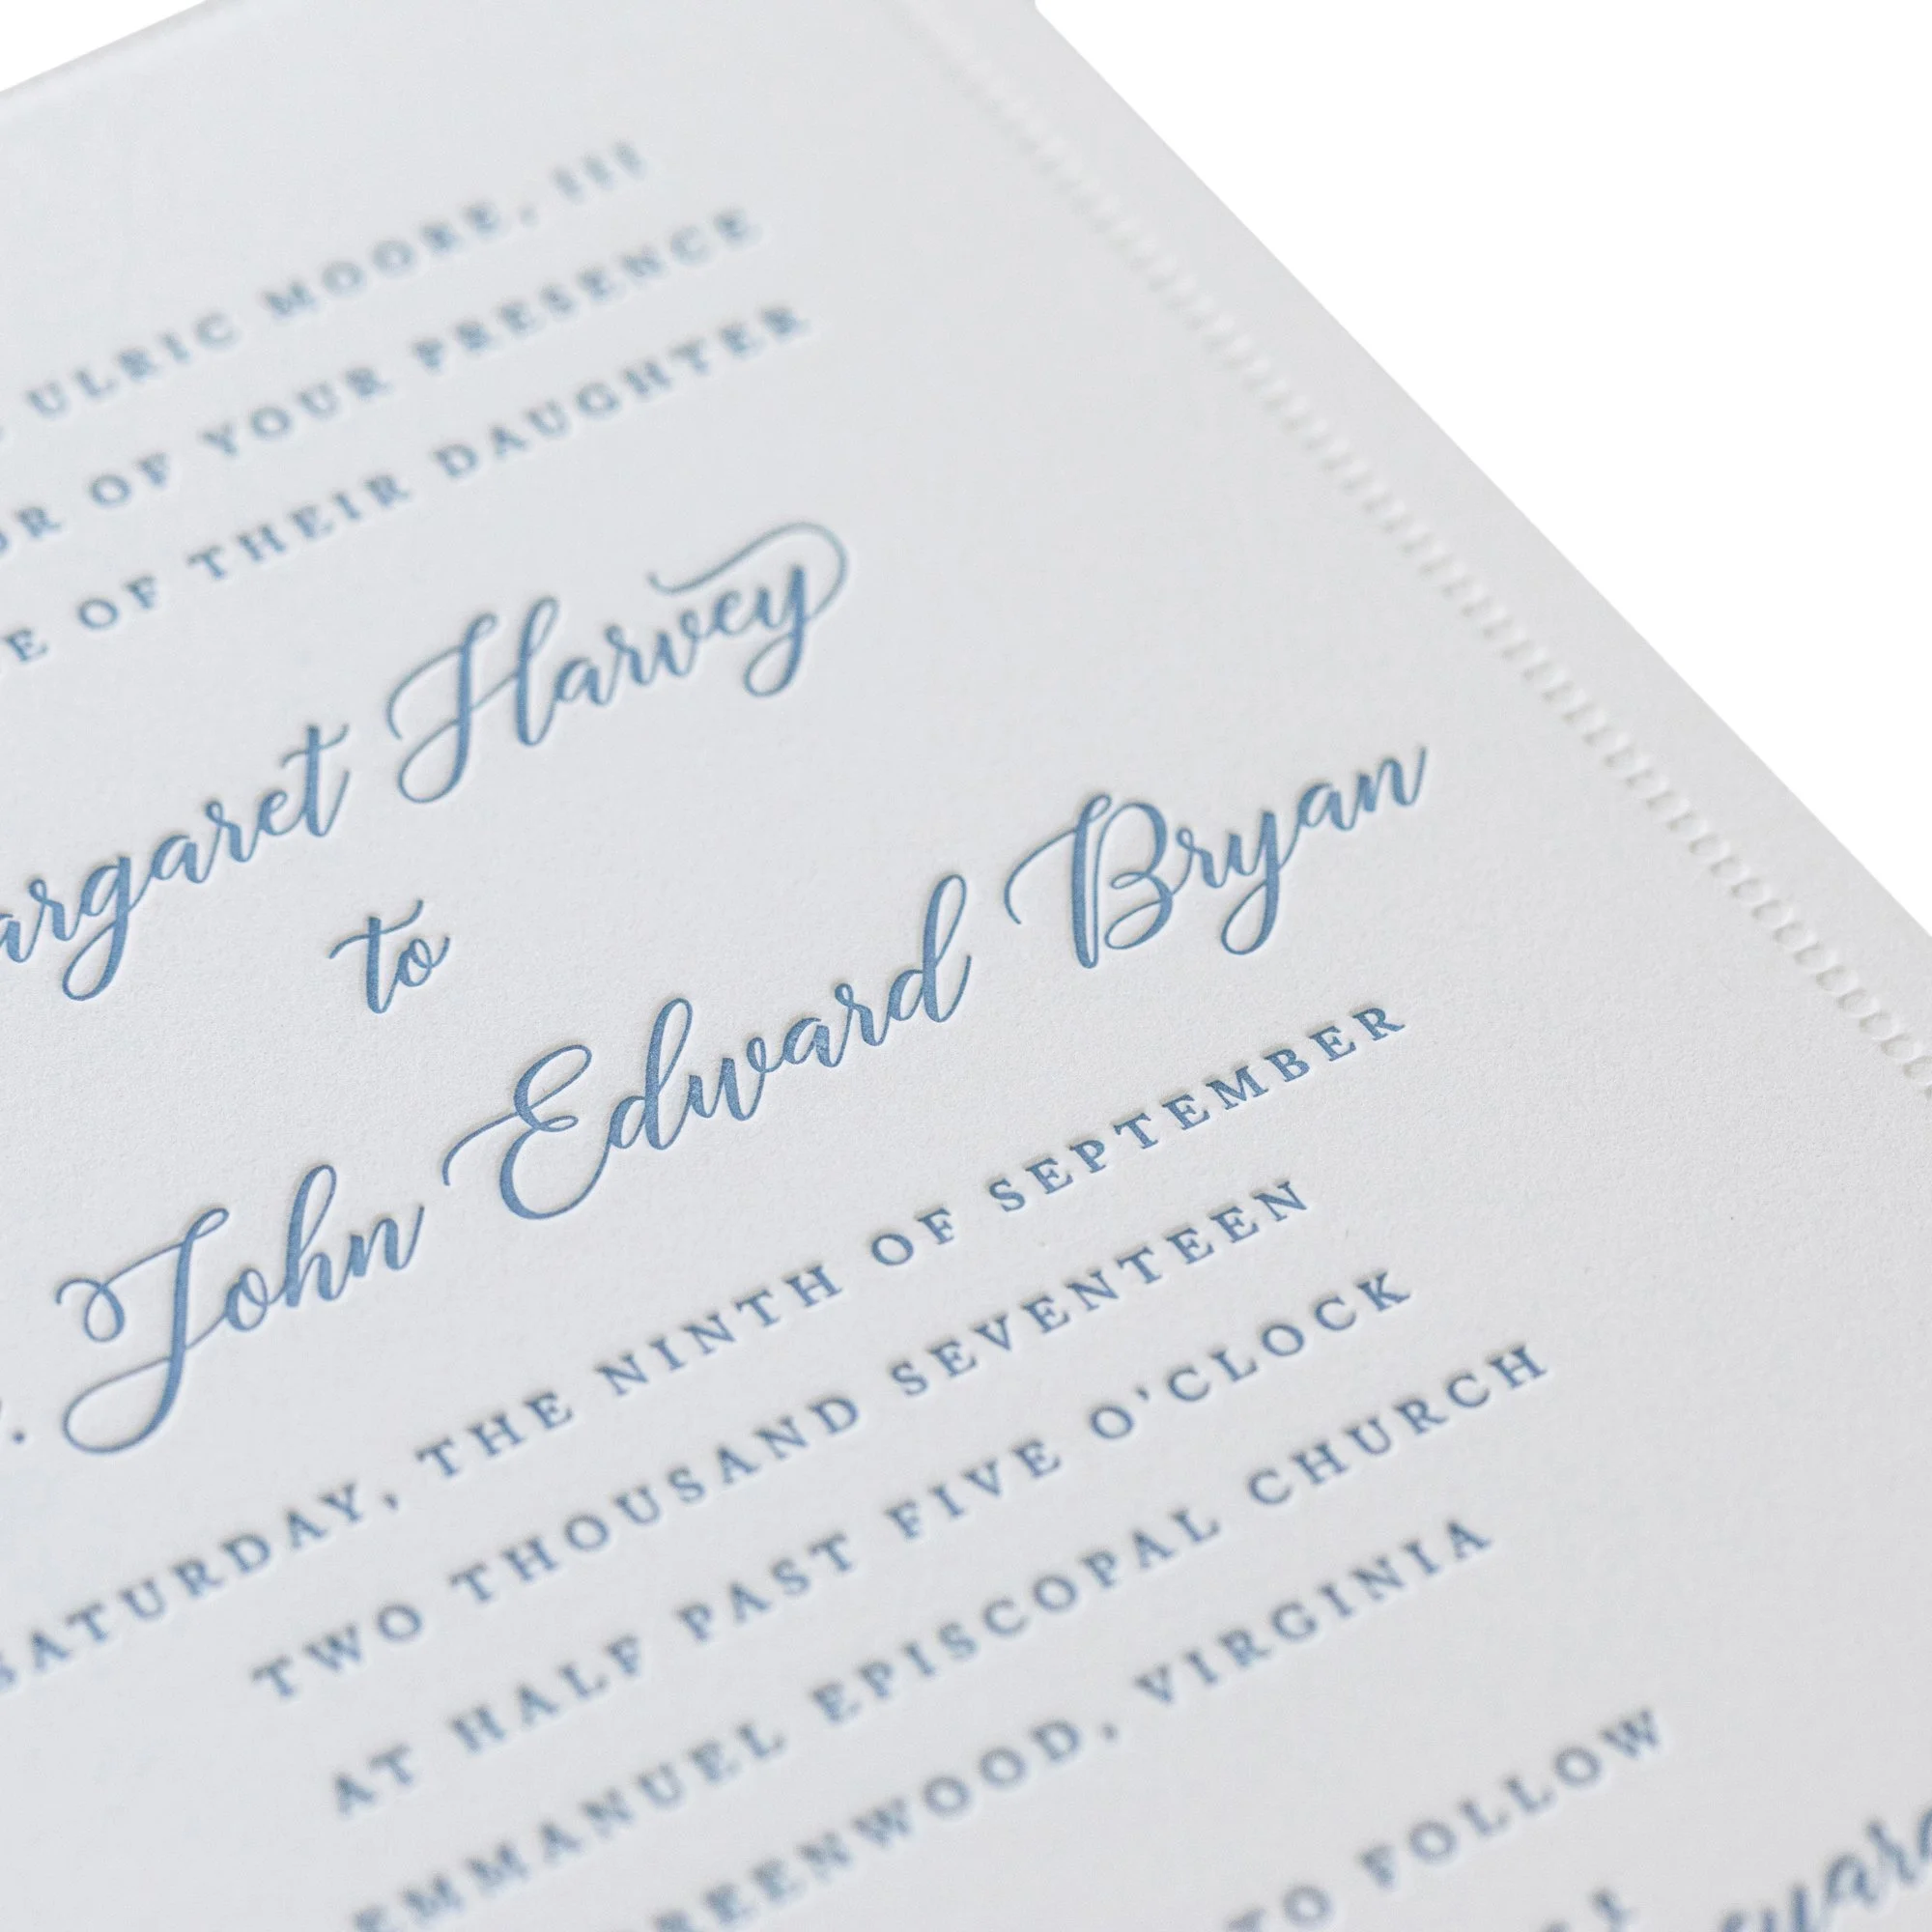 ULRIC MOORE, III
OF YOUR PRESENCE
OF THEIR DAUGHTER
argaret Harvey
to
John Edward Bryan
SATURDAY, THE NINTH OF SEPTEMBER
TWO THOUSAND SEVENTEEN
AT HALF PAST FIVE O'CLOCK
EMMANUEL EPISCOPAL CHURCH
REENWOOD, VIRGINIA
TO FOLLOW